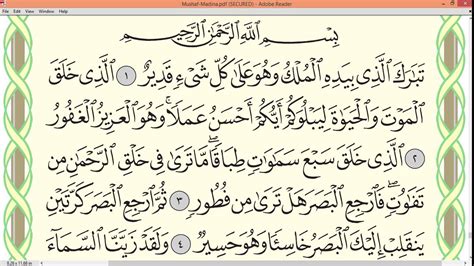 Mushaf-Madina.pdf (SECURED) - Adobe Reader
File Edit View Window Help
بِسْمِ ٱللَّهِ ٱلرَّحْمَٰنِ ٱلرَّحِيمِ
تَبَٰرَكَ ٱلَّذِى بِيَدِهِ ٱلْمُلْكُ وَهُوَ عَلَىٰ كُلِّ شَىْءٍ قَدِيرٌ ١ ٱلَّذِى خَلَقَ
ٱلْمَوْتَ وَٱلْحَيَوٰةَ لِيَبْلُوَكُمْ أَيُّكُمْ أَحْسَنُ عَمَلًا ۚ وَهُوَ ٱلْعَزِيزُ ٱلْغَفُورُ
٢ ٱلَّذِى خَلَقَ سَبْعَ سَمَٰوَٰتٍ طِبَاقًا ۖ مَّا تَرَىٰ فِى خَلْقِ ٱلرَّحْمَٰنِ مِن
تَفَٰوُتٍ ۖ فَٱرْجِعِ ٱلْبَصَرَ هَلْ تَرَىٰ مِن فُطُورٍ ٣ ثُمَّ ٱرْجِعِ ٱلْبَصَرَ كَرَّتَيْنِ
يَنقَلِبْ إِلَيْكَ ٱلْبَصَرُ خَاسِئًا وَهُوَ حَسِيرٌ ٤ وَلَقَدْ زَيَّنَّا ٱلسَّمَآءَ
8.26 x 11.69 in